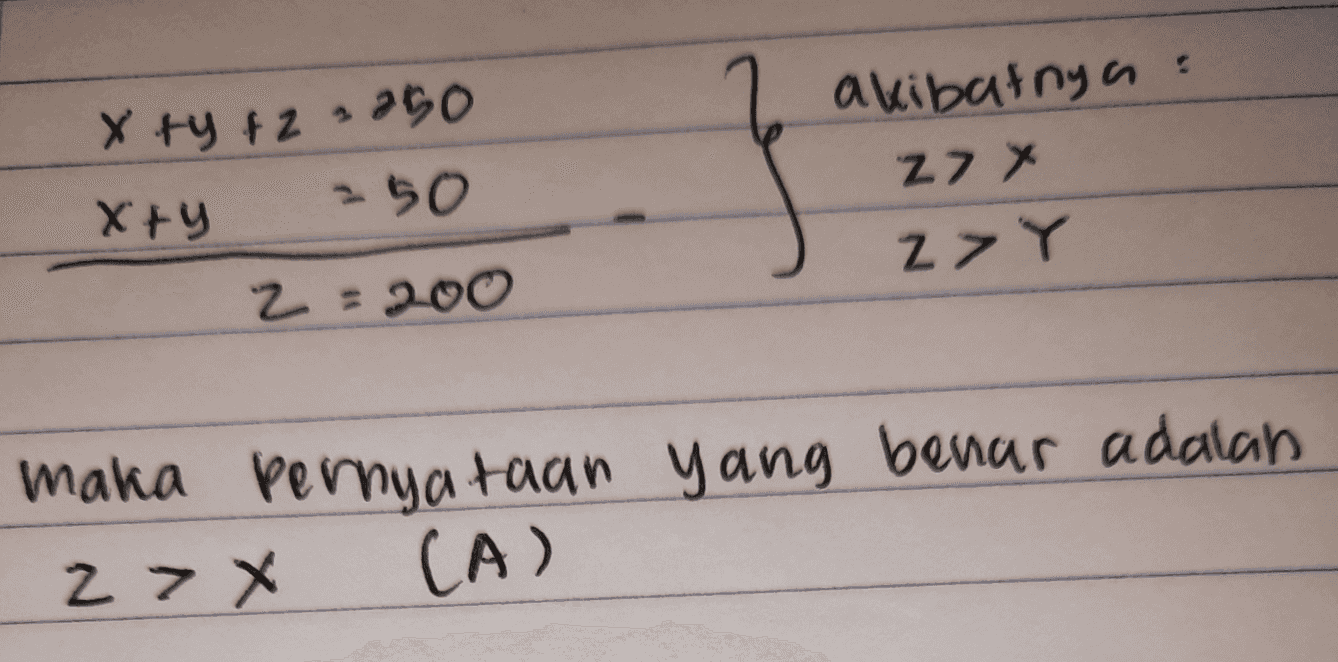 x + y + z = 250
x + y = 50 -
z = 200
akibatnya :
z > x
z > Y
maka pernyataan yang benar adalah
z > x (A)